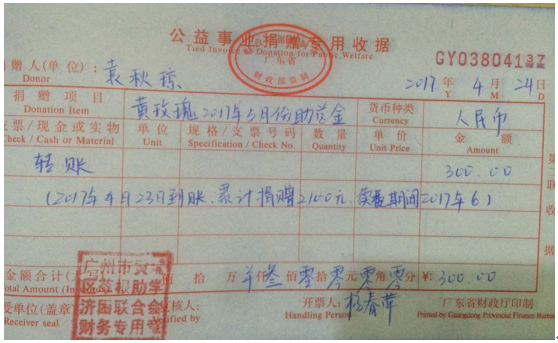 公益事业捐赠专用收据
Tied Invoice of Donation for Public Welfare
广东省
财政部监制
GY03804137
赠人(单位): 袁秋琼
Donor
2017 年 4 月 24 日
Y M D
捐赠项目 黄玫瑰2017年5月份助学金 货币种类 人民币
Donation Item Currency
支票/现金或实物 单位 规格/支票号码 数量 单价 金额
Check / Cash or Material Unit Specification / Check No. Quantity Unit Price Amount
转账 300.00
(2017年4月23日到账,累计捐赠2100元, 期间2017年6)
金额合计( 拾 万 仟 叁 佰 零 拾 零 元 零 角 零 分 ¥: 300.00
Total Amount (In
广州市
区草根助学
济困联合会
财务专用章
受单位(盖章) 核人: 开票人: 杨春萍 广东省财政厅印制
Receiver seal Verified by Handling Person Printed by Guangdong Provincial Finance Bureau